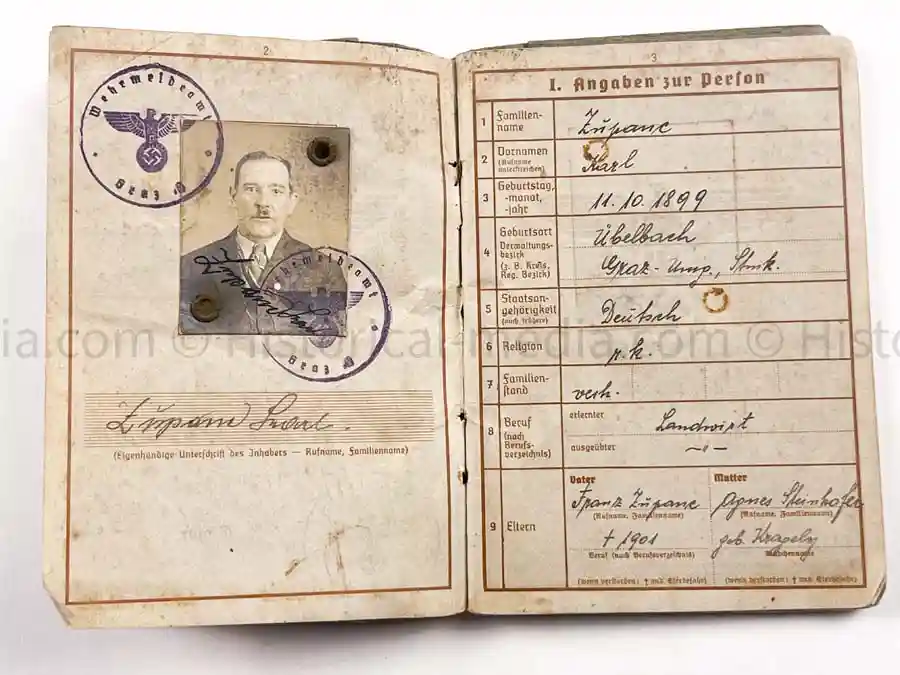 2
Wehrmeldeamt
Graz
Wehrmeldeamt
Graz
Zupanc Karl.
(Eigenhändige Unterschrift des Inhabers — Rufname, Familienname)
3
I. Angaben zur Person
1 Familien-
name
Zupanc
2 Vornamen
(Rufname
unterstreichen)
Karl
3 Geburtstag,
-monat,
-jahr
11.10.1899
4 Geburtsort
Verwaltungs-
bezirk
(z. B. Kreis,
Reg. Bezirk)
Übelbach
Graz-Umg., Stmk.
5 Staatsan-
gehörigkeit
(auch frühere)
Deutsch
6 Religion
r. k.
7 Familien-
stand
verh.
8 Beruf
(nach
Berufs-
verzeichnis)
erlernter
Landwirt
ausgeübter
—"—
9 Eltern
Vater
Franz Zupanc
(Rufname, Familienname)
† 1901
Beruf (nach Berufsverzeichnis)
(wenn verstorben: † und Sterbejahr)
Mutter
Agnes Steinhofer
(Rufname, Familienname)
geb.
Mädchenname
(wenn verstorben: † und Sterbejahr)
ia.com © Historical-media.com © Histo